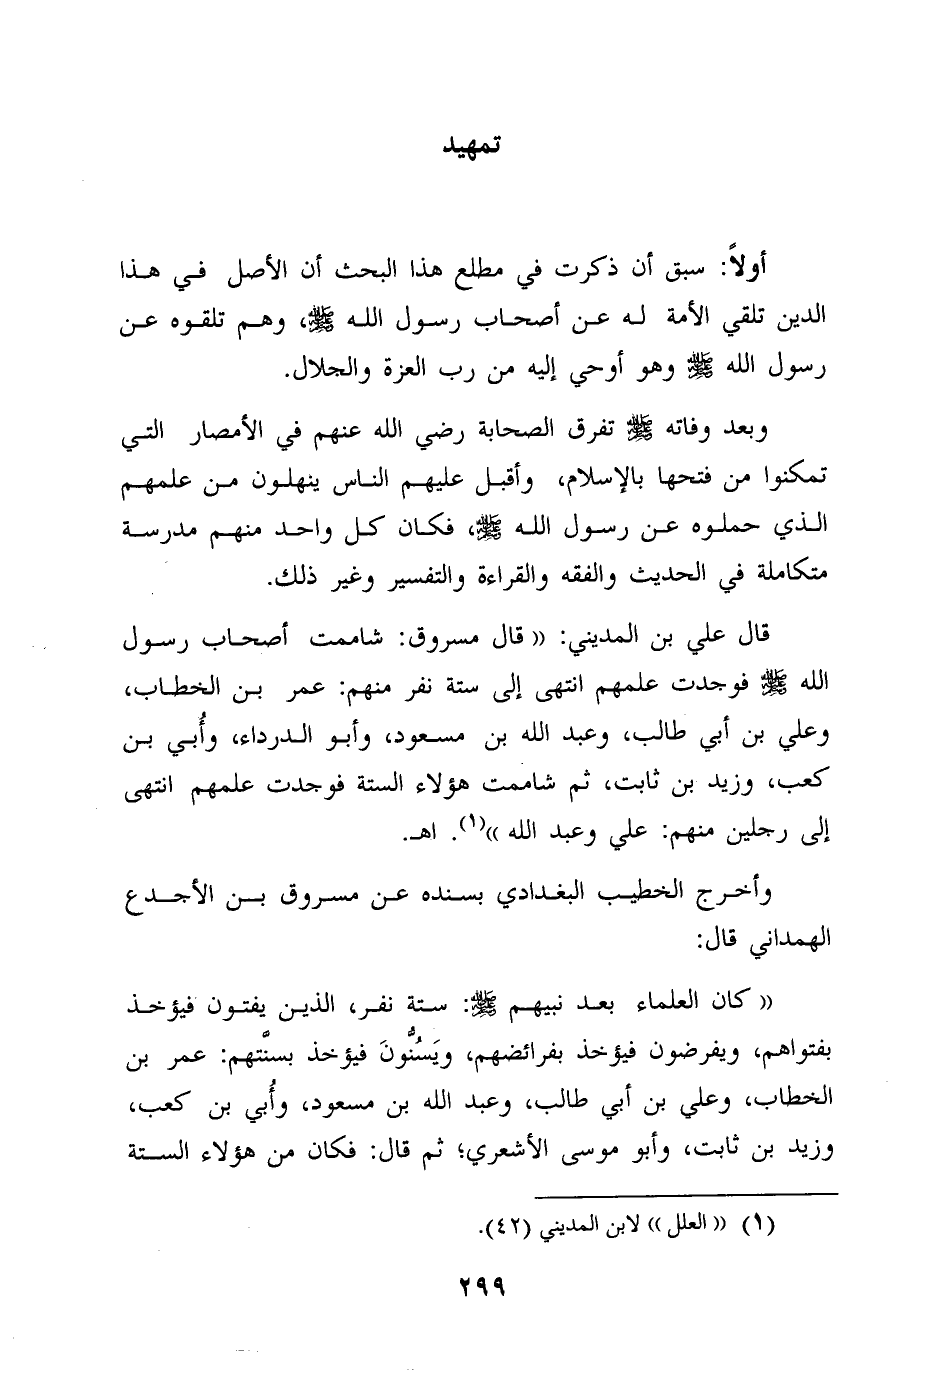 تمهيد
أولاً: سبق أن ذكرت في مطلع هذا البحث أن الأصل في هذا
الدين تلقي الأمة له عن أصحاب رسول الله ﷺ، وهم تلقوه عن
رسول الله ﷺ وهو أوحي إليه من رب العزة والجلال.
وبعد وفاته ﷺ تفرق الصحابة رضي الله عنهم في الأمصار التي
تمكنوا من فتحها بالإسلام، وأقبل عليهم الناس ينهلون من علمهم
الذي حملوه عن رسول الله ﷺ، فكان كل واحد منهم مدرسة
متكاملة في الحديث والفقه والقراءة والتفسير وغير ذلك.
قال علي بن المديني: (( قال مسروق: شاممت أصحاب رسول
الله ﷺ فوجدت علمهم انتهى إلى ستة نفر منهم: عمر بن الخطاب،
وعلي بن أبي طالب، وعبد الله بن مسعود، وأبو الدرداء، وأُبي بن
كعب، وزيد بن ثابت، ثم شاممت هؤلاء الستة فوجدت علمهم انتهى
إلى رجلين منهم: علي وعبد الله ))(١). اهـ.
وأخرج الخطيب البغدادي بسنده عن مسروق بن الأجدع
الهمداني قال:
(( كان العلماء بعد نبيهم ﷺ: ستة نفر، الذين يفتون فيؤخذ
بفتواهم، ويفرضون فيؤخذ بفرائضهم، ويَسُنُّونَ فيؤخذ بسنَّتهم: عمر بن
الخطاب، وعلي بن أبي طالب، وعبد الله بن مسعود، وأُبي بن كعب،
وزيد بن ثابت، وأبو موسى الأشعري؛ ثم قال: فكان من هؤلاء الستة
(١) (( العلل )) لابن المديني (٤٢).
٢٩٩